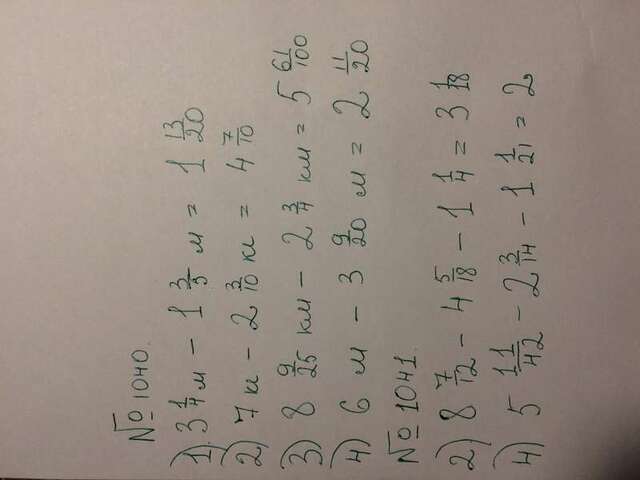 № 1040.
1) 3 1/4 м − 1 3/5 м = 1 13/20
2) 7 км − 2 3/10 км = 4 7/10
3) 8 9/25 км − 2 3/4 км = 5 61/100
4) 6 м − 3 9/20 м = 2 11/20
№ 1041.
2) 8 7/12 − 4 5/18 − 1 1/4 = 3 1/18
4) 5 11/42 − 2 3/14 − 1 1/21 = 2